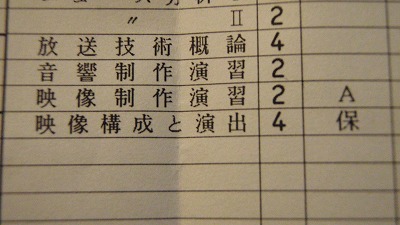 〃 Ⅱ 2
放送技術概論 4
音響制作演習 2
映像制作演習 2 A
映像構成と演出 4 保